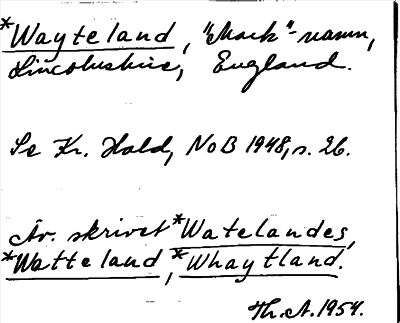 *Wayteland, "Mark"-namn,
Lincolnshire, England.
Se Kr. Hald, NoB 1948, s. 26.
Äv. skrivet *Watelandes,
*Watteland, *Whaytland.
Th. A. 1954.